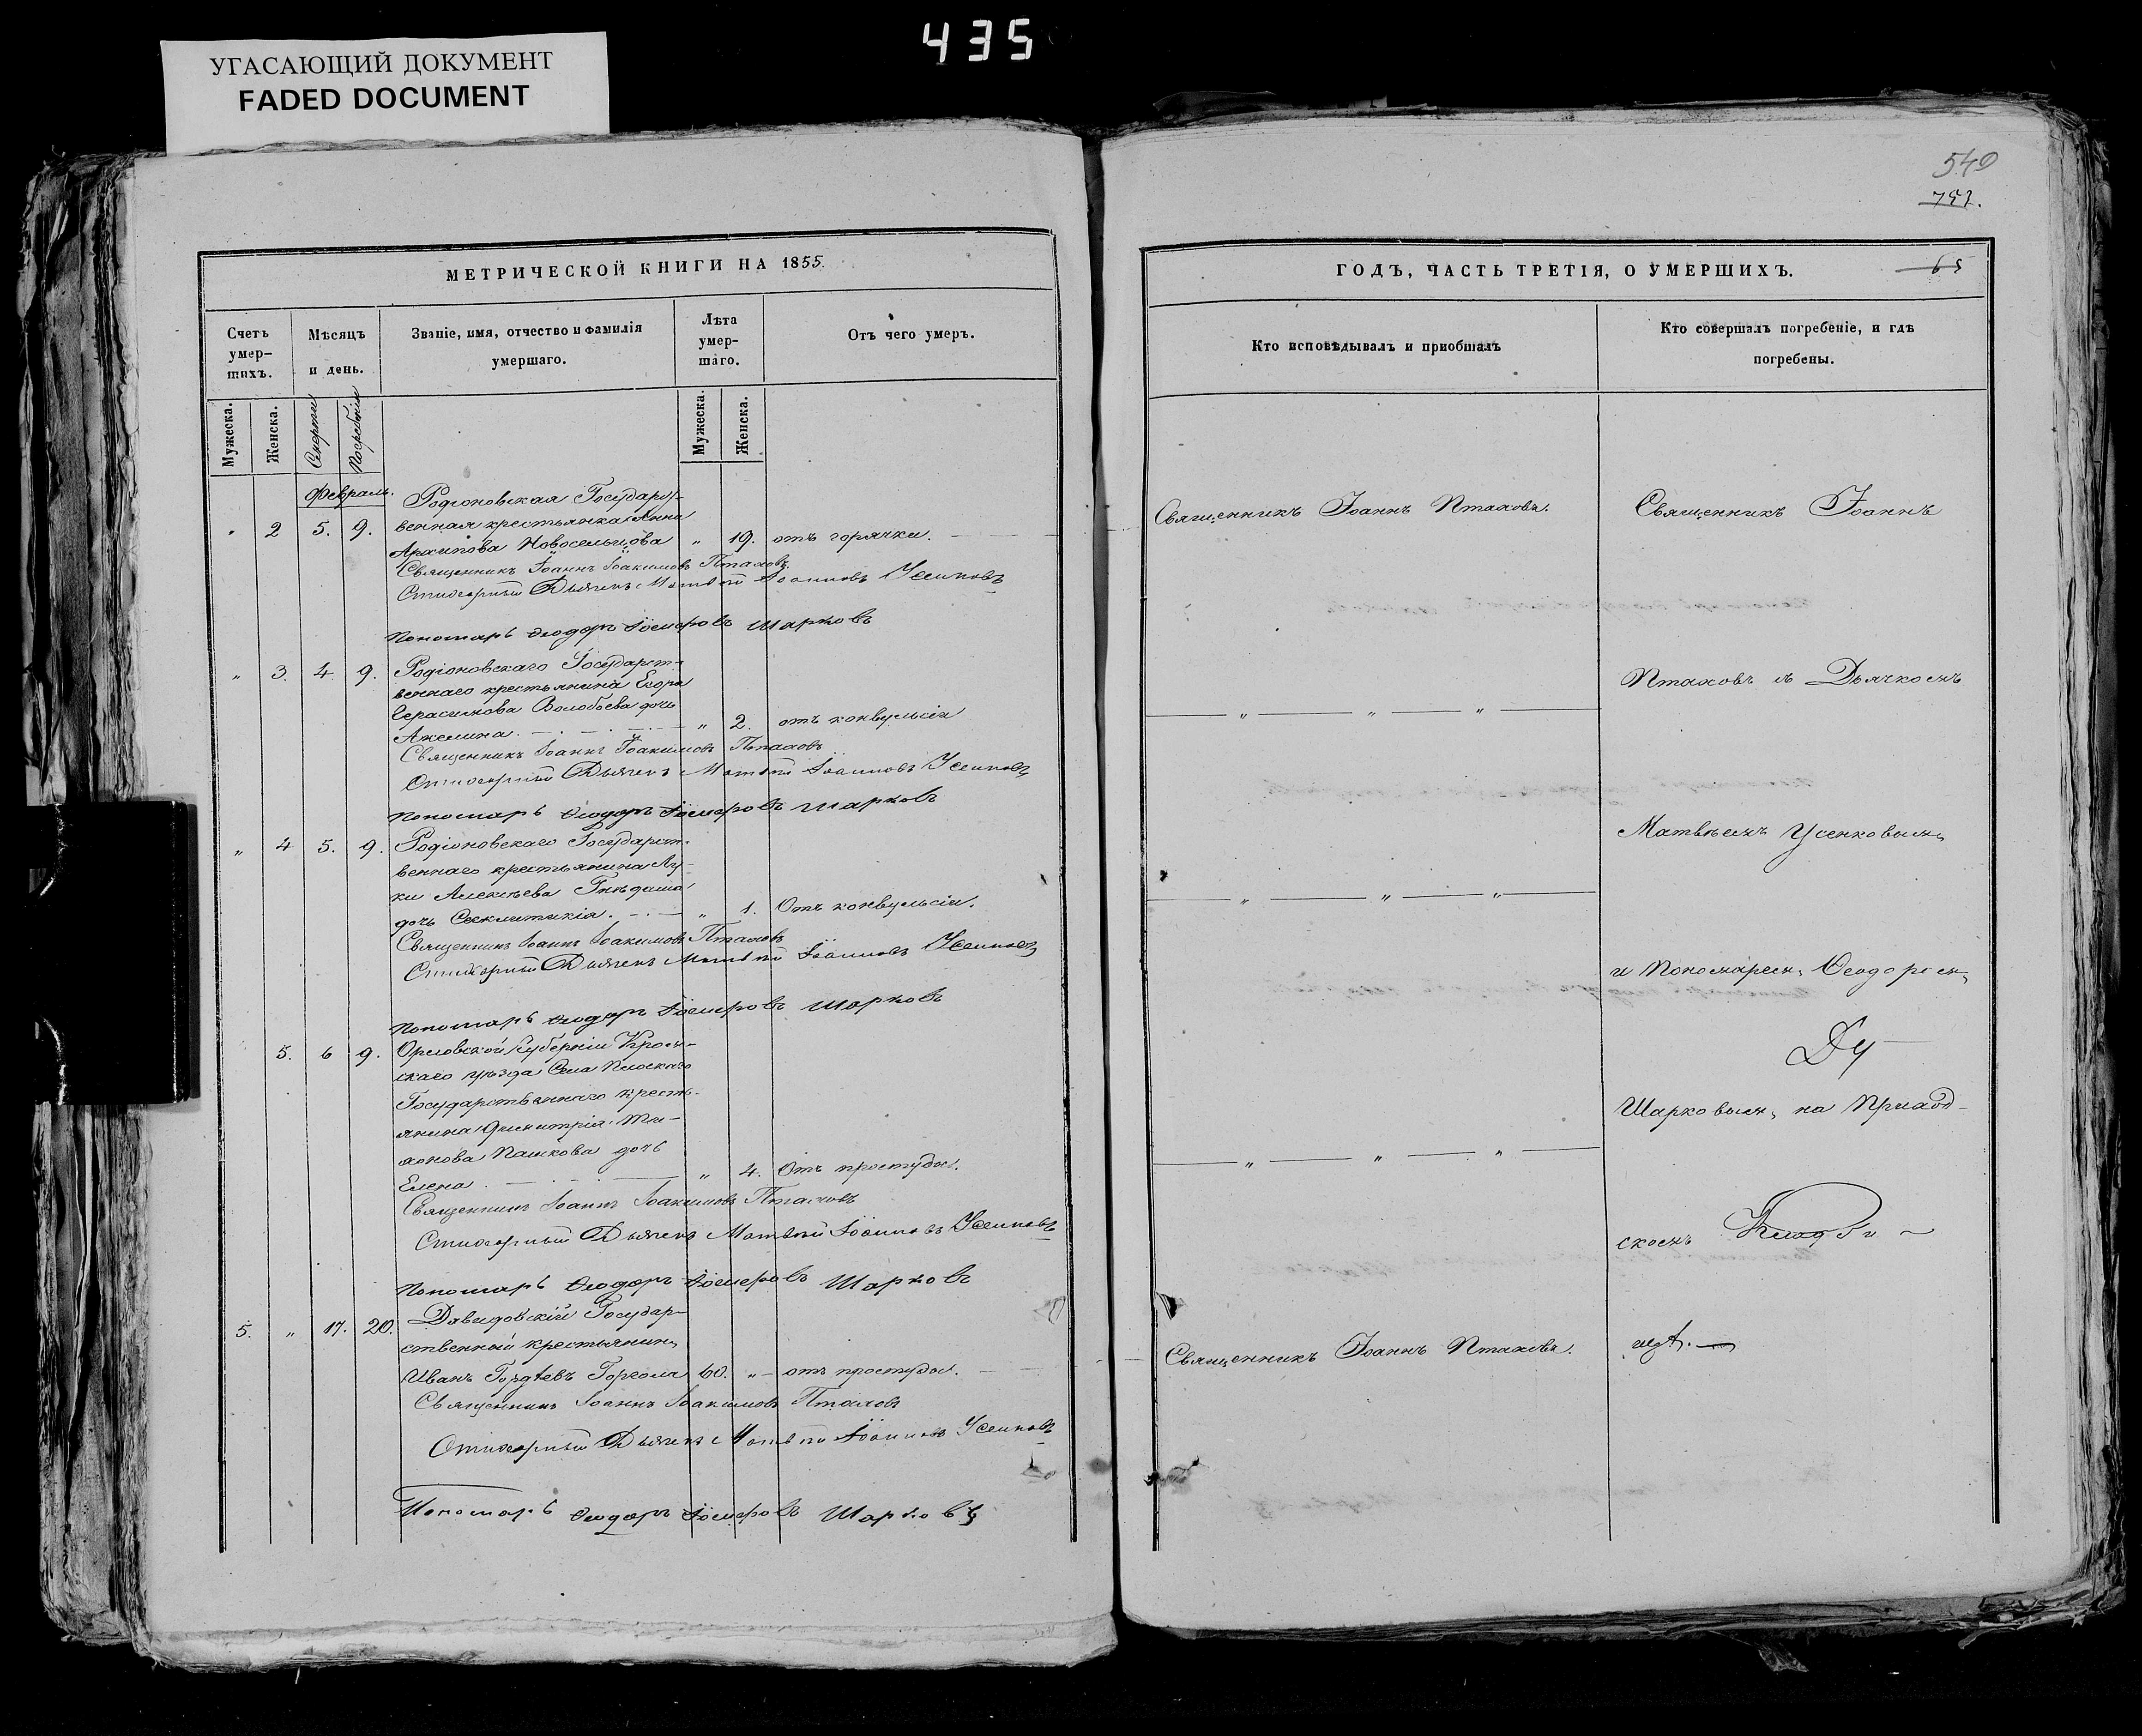 435
УГАСАЮЩИЙ ДОКУМЕНТ
FADED DOCUMENT
МЕТРИЧЕСКОЙ КНИГИ НА 1855.
Счетъ умер-
шихъ.
Мѣсяцъ
и день.
Званіе, имя, отчество и фамилія
умершаго.
Лѣта
умер-
шаго.
Отъ чего умеръ.
Мужеска.
Женска.
Смерти
Погребенія
Мужеска.
Женска.
Февраль.
Родіоновская Государст-
" 2 5. 9. венная крестьянка Анна
Архипова Новосельцова " 19. отъ горячки.
Священникъ Іоаннъ Іоакимовъ Птаховъ
Стихарный Дьячекъ Матвѣй Іоанновъ Усенковъ
Пономарь Ѳеодоръ Шарковъ
" 3. 4. 9. Родіоновскаго Государст-
веннаго крестьянина Егора
Герасимова Волобоева дочь
Акелина. " 2. отъ конвульсіи
Священникъ Іоаннъ Іоакимовъ Птаховъ
Стихарный Дьячекъ Матвѣй Іоанновъ Усенковъ
Пономарь Ѳеодоръ Шарковъ
" 4 5. 9. Родіоновскаго Государст-
веннаго крестьянина Лу-
ки Алексѣева Гнѣдаша
дочь Секлитикія. " 1. Отъ конвульсіи.
Священникъ Іоаннъ Іоакимовъ Птаховъ
Стихарный Дьячекъ Матвѣй Іоанновъ Усенковъ
Пономарь Ѳеодоръ Шарковъ
5. 6 9. Орловской Губерніи Кром-
скаго уѣзда Села Плоскаго
Государственнаго кресть-
янина Димитрія Ти-
хонова Пашкова дочь
Елена. " 4. Отъ простуды.
Священникъ Іоаннъ Іоакимовъ Птаховъ
Стихарный Дьячекъ Матвѣй Іоанновъ Усенковъ
Пономарь Ѳеодоръ Шарковъ
5. " 17. 20. Давидовскій Государ-
ственный крестьянинъ
Иванъ Гордѣевъ Горкола 60. " отъ простуды.
Священникъ Іоаннъ Іоакимовъ Птаховъ
Стихарный Дьячекъ Матвѣй Іоанновъ Усенковъ
Пономарь Ѳеодоръ Шарковъ
540
ГОДЪ, ЧАСТЬ ТРЕТІЯ, О УМЕРШИХЪ.
65
Кто исповѣдывалъ и пріобщалъ
Кто совершалъ погребеніе, и гдѣ
погребены.
Священникъ Іоаннъ Птаховъ.
Священникъ Іоаннъ
Птаховъ съ Дьячкомъ
" " "
Матвѣемъ Усенковымъ
" " "
и Пономаремъ Ѳеодоромъ
Шарковымъ на Приход-
" " "
скомъ Кладби-
Священникъ Іоаннъ Птаховъ.
щѣ.